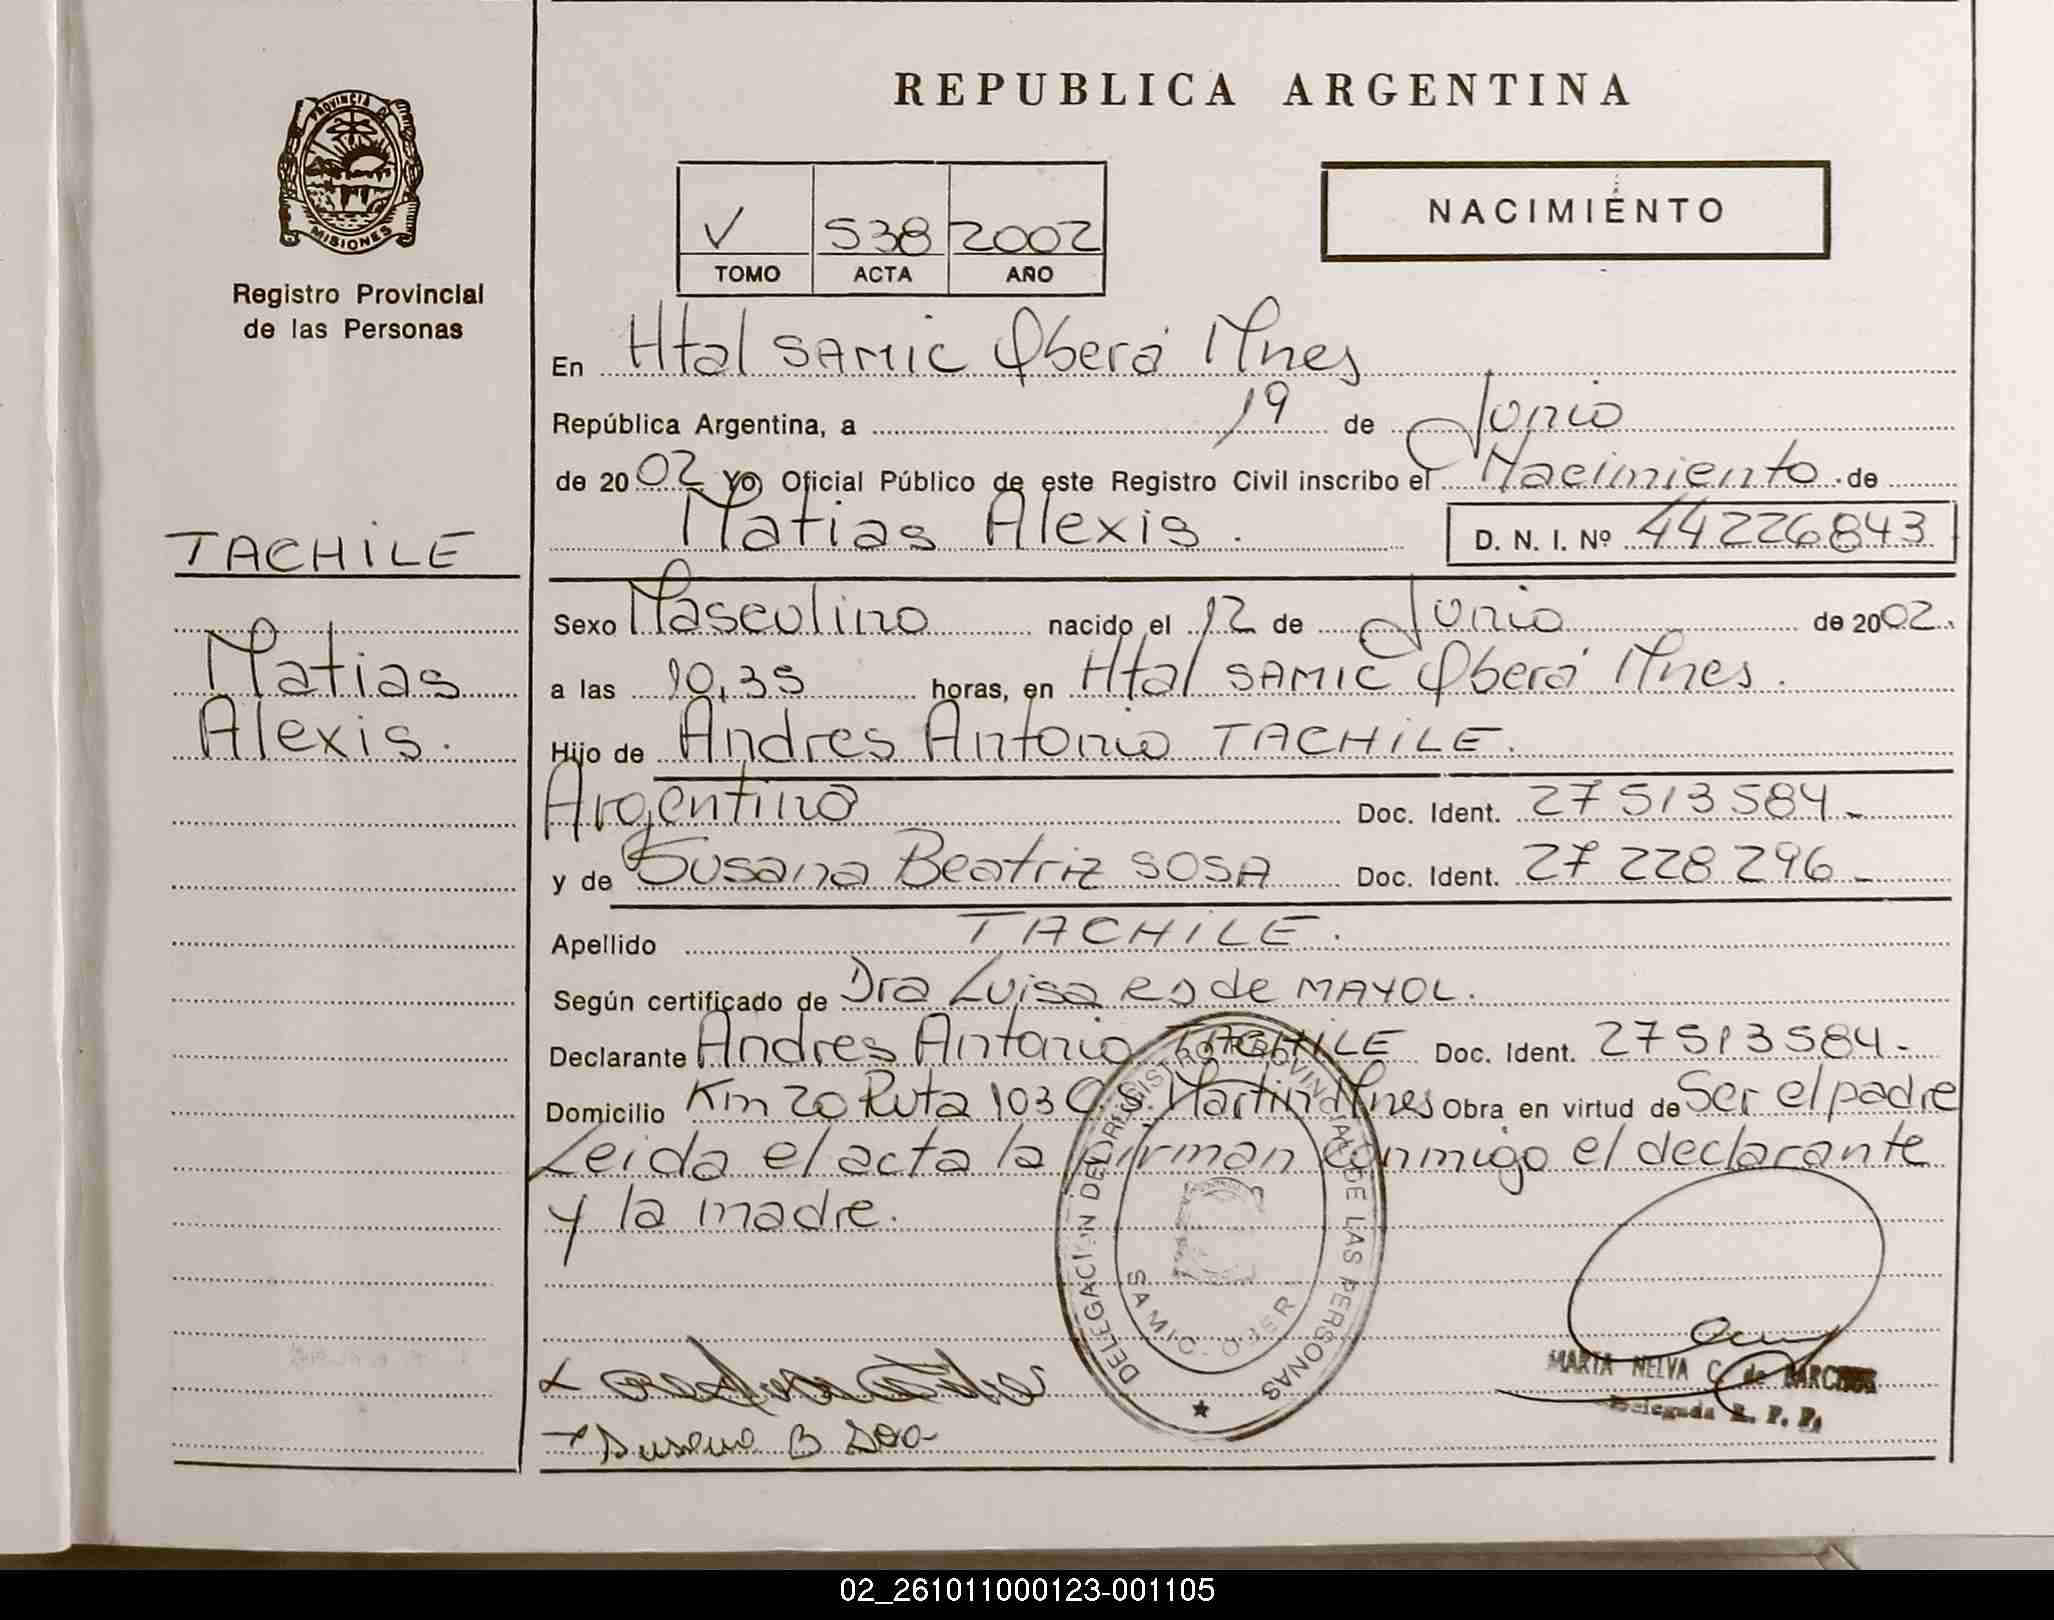 REPUBLICA ARGENTINA
PROVINCIA DE
MISIONES
Registro Provincial
de las Personas
V 538 2002
TOMO ACTA AÑO
NACIMIENTO
En Htal SAMIC Oberá Mnes
República Argentina, a 19 de Junio
de 2002 Yo, Oficial Público de este Registro Civil inscribo el Nacimiento de
Matias Alexis. D. N. I. Nº 44226843
TACHILE
Matias
Alexis.
Sexo Masculino nacido el 12 de Junio de 2002.
a las 10,35 horas, en Htal SAMIC Oberá Mnes.
Hijo de Andres Antonio TACHILE.
Argentino Doc. Ident. 27513584.-
y de Susana Beatriz SOSA Doc. Ident. 27228296-
Apellido TACHILE.
Según certificado de Dra Luisa de MAYOL.
Declarante Andres Antonio TACHILE Doc. Ident. 27513584.-
Domicilio Km 20 Ruta 103 C.S. Martin Mnes Obra en virtud de Ser el padre
Leida el acta la firman conmigo el declarante
y la madre.
DELEGACION DEL REGISTRO PROVINCIAL DE LAS PERSONAS
SAMIC - OBERA
MARTA NELVA C. de
Delegada R. P. P.
Susana B
02_261011000123-001105